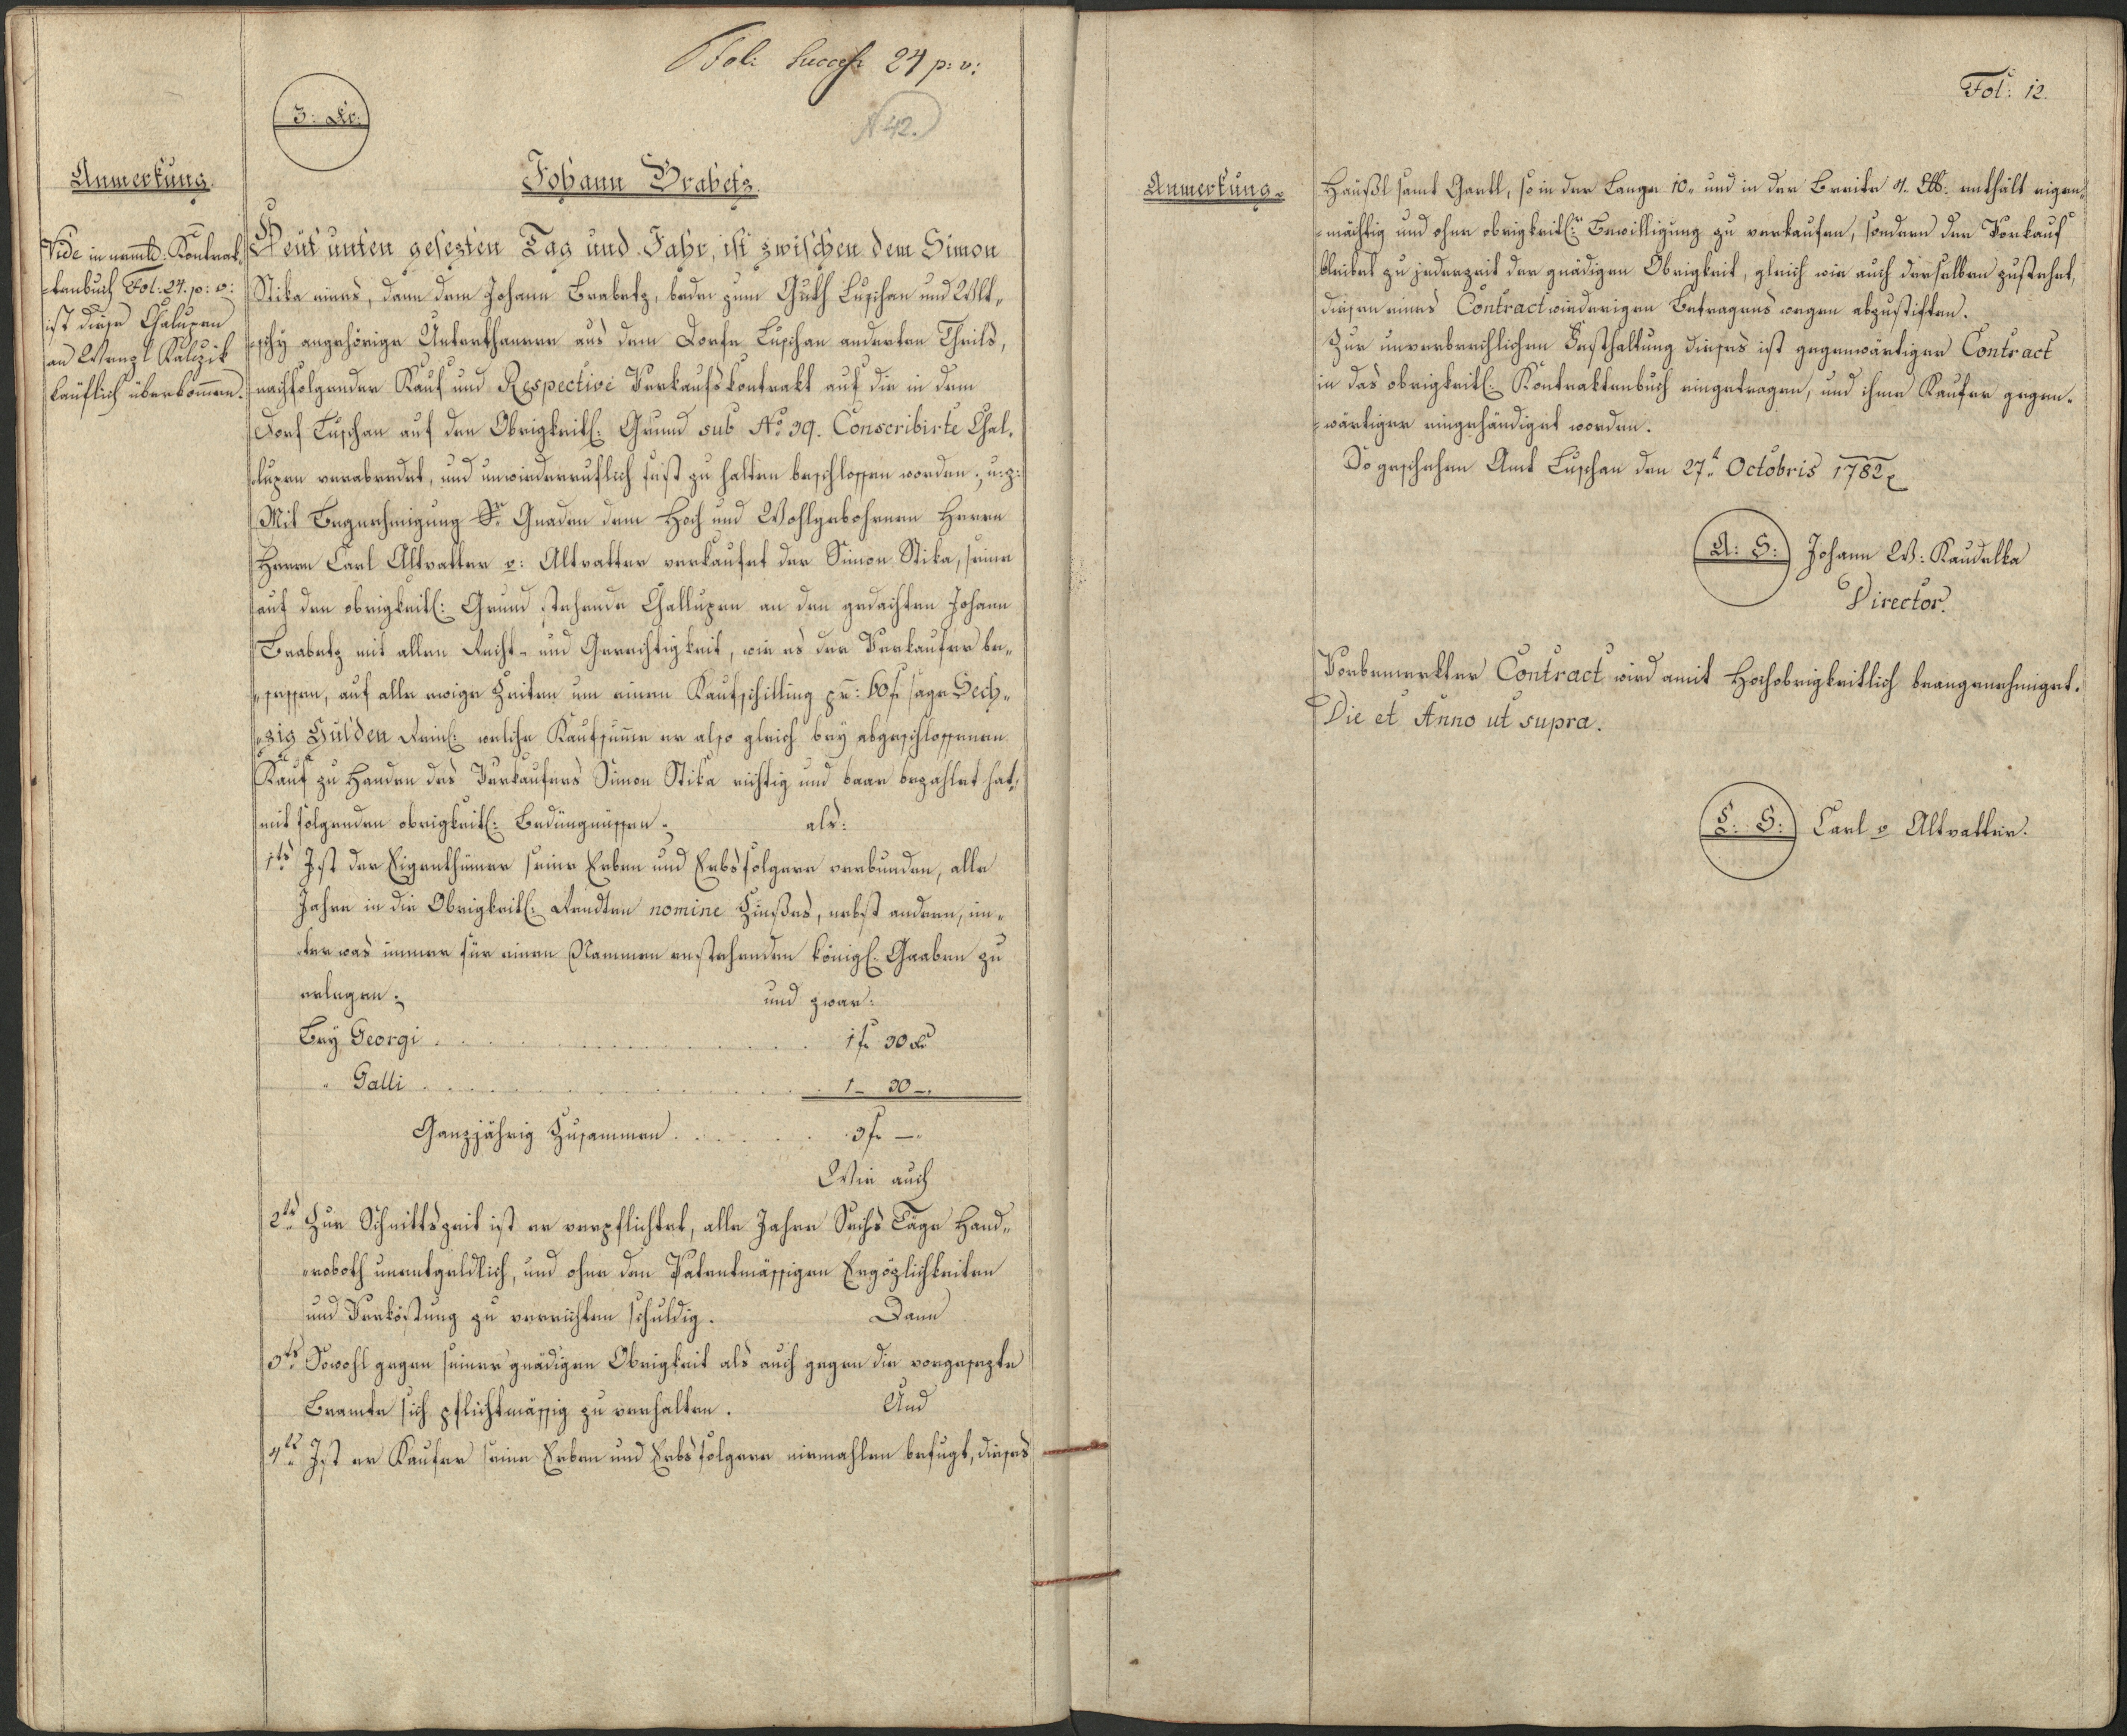 Fol: Success: 24 p: v:
3: Xr:
N 42.
Anmerkung.
Johann Brabetz.
Vide in nemtb: Kontrak¸
¸tenbuch Fol: 24. p: v:
ist diese Chalupen
an Wenzl Kalczik
käuflich überkom̅en.
Heut unten gesezten Tag und Jahr, ist zwischen dem Simon
Stika eines, dann dem Johann Brabetz, beder zum Guth Luschan und Wlt„
„schy angehörige Unterthanen aus dem Dorfe Luschan anderten Theils,
nachfolgender Kauf und Respective Verkaufskontrakt auf die in dem
Dorf Luschan auf den Obrigkeitl: Grund sub No: 39. Conscribirte Chal¸
¸lupen verabredet, und unwiederruflich fest zu halten beschlossen worden; u: z:
Mit Begnehmigung Sr Gnaden dem Hoch und Wohlgebohrnen Herrn
Herrn Carl Altvatter v: Altvatter verkaufet der Simon Stika, seine
auf den obrigkeitl: Grund stehende Challupen an den gedachten Johann
Brabetz mit allen Recht- und Gerechtigkeit, wie es der Verkaufer be„
„sessen, auf alle ewige Zeiten um einen Kaufschilling pr: 60 f sage Sech„
„zig Gulden Reinl: welche Kaufsum̅e er also gleich bey abgeschlossenen
Kauf zu Handen des Verkaufers Simon Stika richtig und baar bezahlet hat,
mit folgenden obrigkeitl: Bedingnüssen. als:
1tens Ist der Eigenthümer seine Erben und Erbsfolgere verbunden, alle
Jahre in die Obrigkeitl: Rendten nomine Zinßes, nebst andern, un„
ter was immer für einen Nammen enstehenden königl: Gaaben zu
erlegen; und zwar:
Bey Georgi . . . 1 f 30 Xr
„ Galli . . . 1 – 30 –.
Ganzjährig Zusammen . . . 3 f –„
Wie auch
2tens Zur Schnittszeit ist er verpflichtet, alle Jahre Sechs Täge Hand„
„roboth unentgeldlich, und ohne den Patentmässigen Ergözlichkeiten
und Verköstung zu verrichten schuldig. Dann
3tens Sowohl gegen seiner gnädigen Obrigkeit als auch gegen die vorgesezte
Beamte sich pflichtmässig zu verhalten. Und
4tens Ist er Kaufer seine Erben und Erbsfolgere niemahlen befugt, dieses
Fol: 12.
Anmerkung.
Häußl samt Gartl, so in der Lange 10„ und in der Breite 4. Elb: enthält eigen„
„mächtig und ohne obrigkeitl: Bewilligung zu verkaufen, sondern der Vorkauf
bleibet zu jederzeit der gnädigen Obrigkeit, gleich wie auch derselben zustehet,
diesen eines Contract wiederigen Betragens wegen abzustiften.
Zur unverbrechlichen Festhaltung dieses ist gegenwärtiger Contract
in das obrigkeitl: Kontraktenbuch eingetragen, und ihme Kaufer gegen„
„wärtiger eingehändiget worden.
So geschehen Amt Luschan den 27t Octobris 1782
A: S: Johann W: Kaudelka
Director.
Vorbemerkter Contract wird amit Hochobrigkeitlich beangenehmiget.
Die et Anno ut supra.
L: S: Carl v Altvatter.